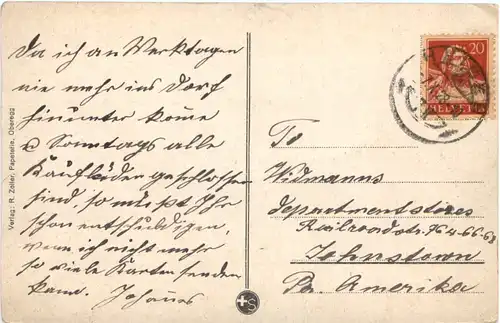 Da ich an Werktagen
nie mehr ins Dorf
hinunter kome
u Sonntags alle
Kaufläden geschlossen
sind, so müßt Ihr
schon entschuldigen,
wenn ich nicht mehr
so viele Karten senden
kann. Johannes
Verlag: R. Zoller, Papeterie, Oberegg
20
HELVETIA
To
Widmanns
departmentstores
Railroadstr. 64-66-68
Johnstown
Pa. Amerika